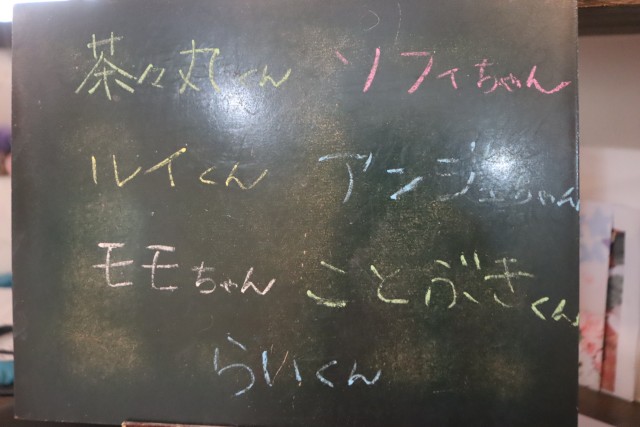 茶々丸くん ソフィちゃん
ルイくん アンジェちゃん
モモちゃん ことぶきくん
らいくん